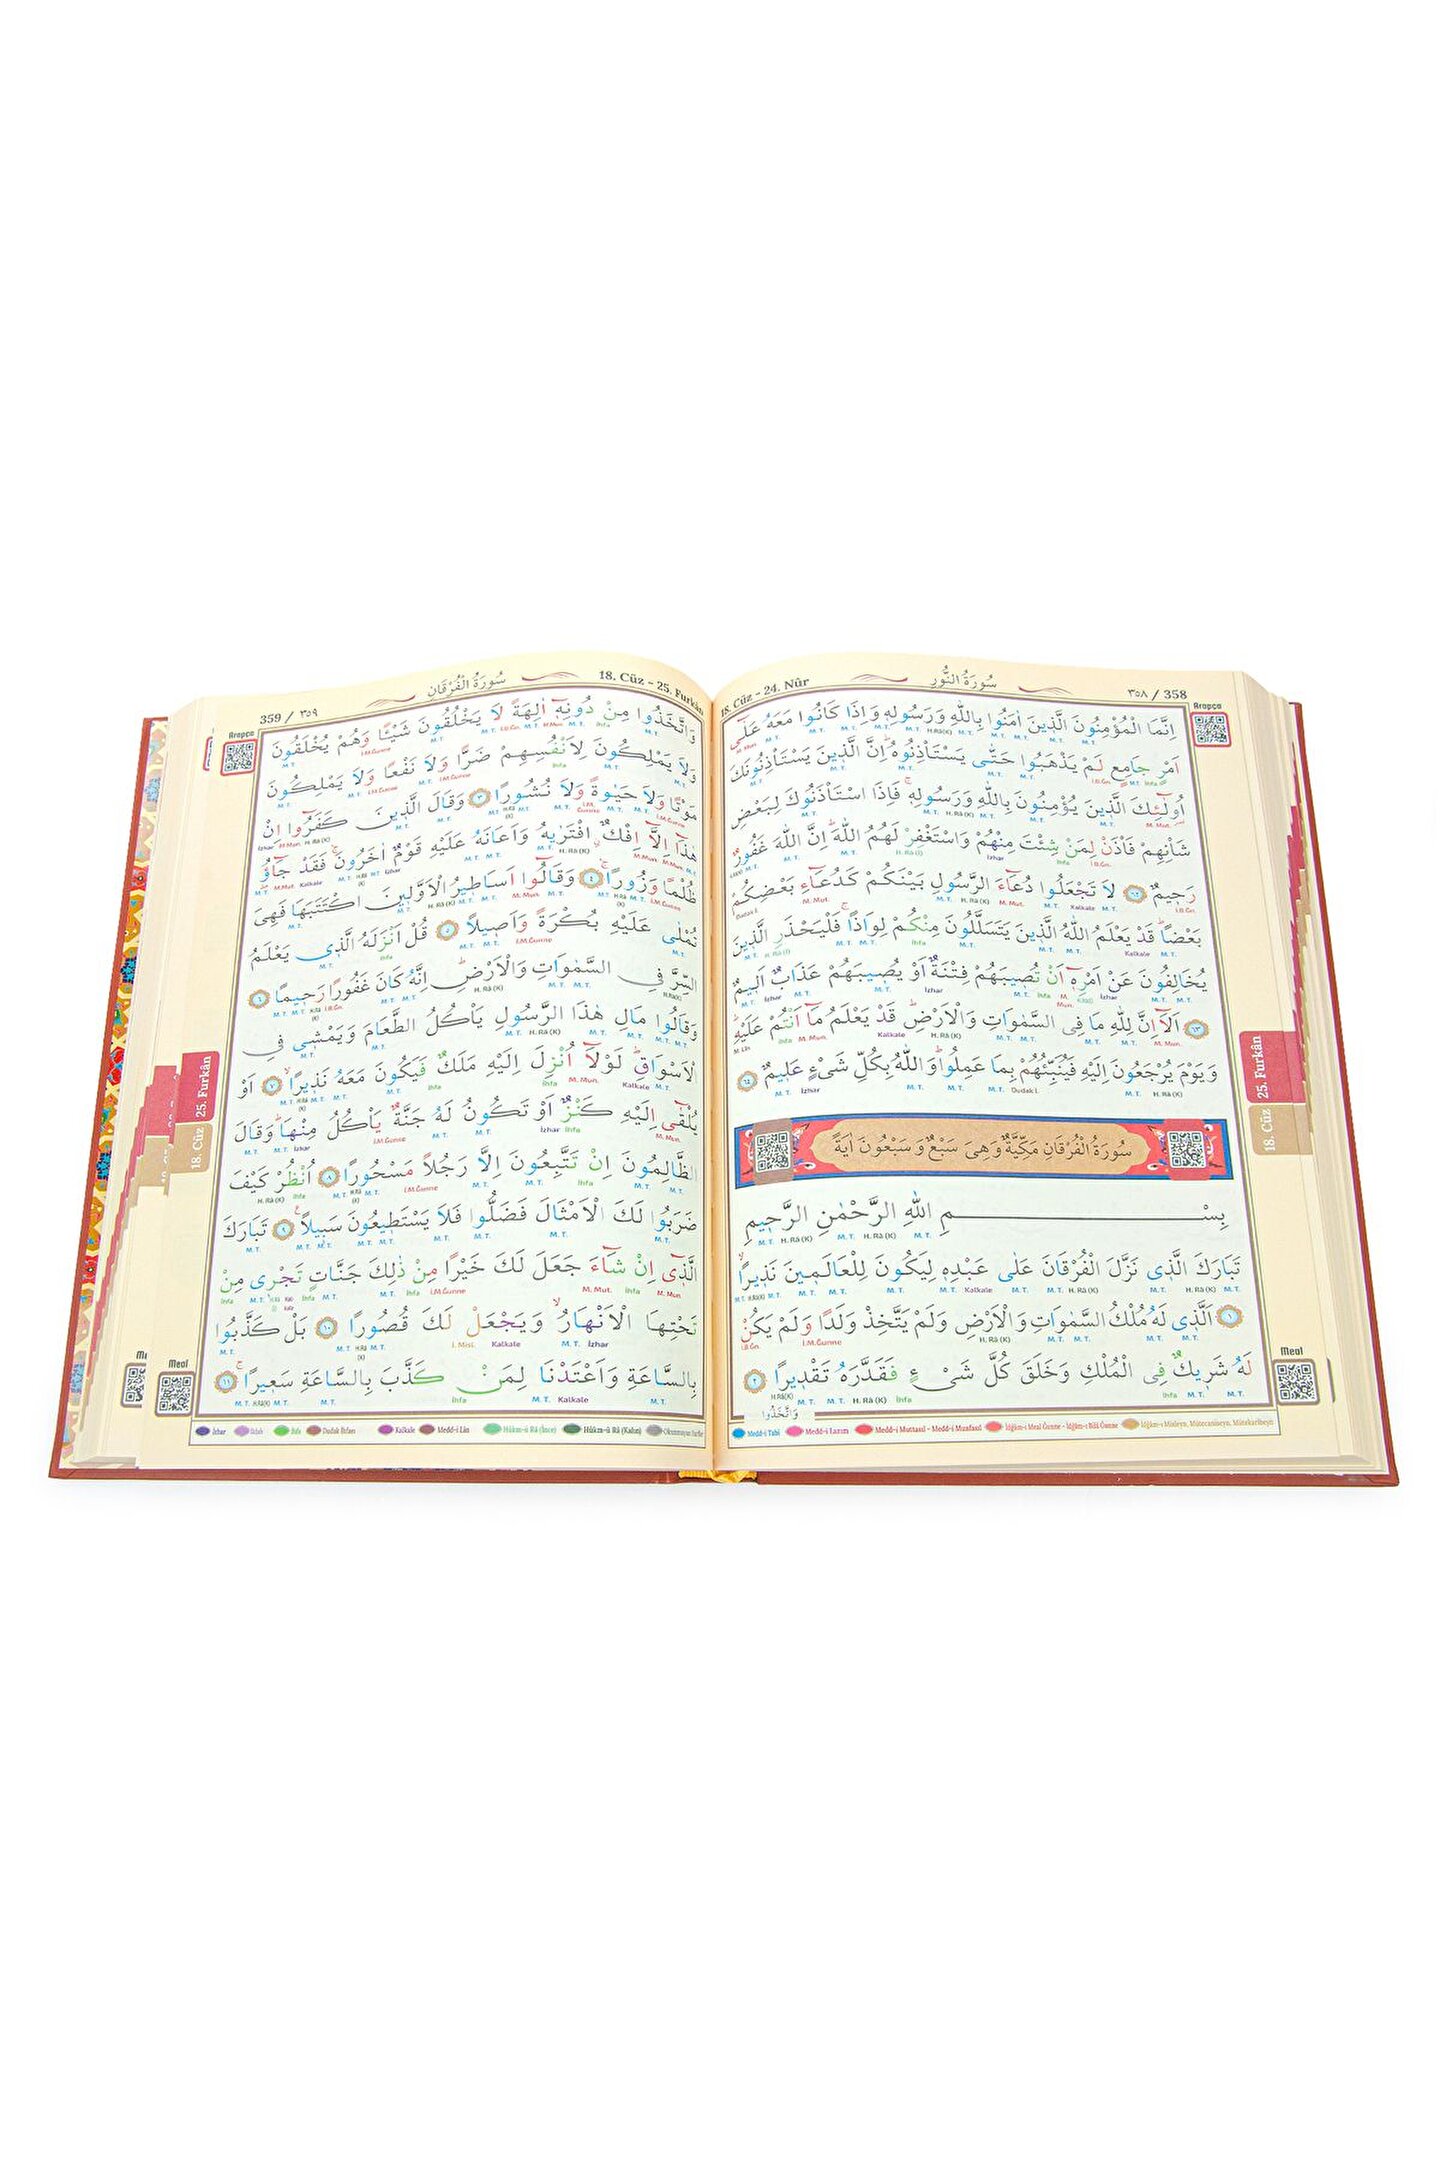 358 / ٣٥٨
سُورَةُ النُّورِ
18. Cüz - 24. Nûr
Arapça
اِنَّمَا الْمُؤْمِنُونَ الَّذِينَ اٰمَنُوا بِاللّٰهِ وَرَسُولِهٖ وَاِذَا كَانُوا مَعَهُ عَلٰٓى
اَمْرٍ جَامِعٍ لَمْ يَذْهَبُوا حَتّٰى يَسْتَأْذِنُوهُ اِنَّ الَّذِينَ يَسْتَأْذِنُونَكَ
اُولٰٓئِكَ الَّذِينَ يُؤْمِنُونَ بِاللّٰهِ وَرَسُولِهٖ فَاِذَا اسْتَأْذَنُوكَ لِبَعْضِ
شَأْنِهِمْ فَأْذَنْ لِمَنْ شِئْتَ مِنْهُمْ وَاسْتَغْفِرْ لَهُمُ اللّٰهَ اِنَّ اللّٰهَ غَفُورٌ
رَحِيمٌ ٦٢ لَا تَجْعَلُوا دُعَٓاءَ الرَّسُولِ بَيْنَكُمْ كَدُعَٓاءِ بَعْضِكُمْ
بَعْضًا قَدْ يَعْلَمُ اللّٰهُ الَّذِينَ يَتَسَلَّلُونَ مِنْكُمْ لِوَاذًا فَلْيَحْذَرِ الَّذِينَ
يُخَالِفُونَ عَنْ اَمْرِهٖٓ اَنْ تُصِيبَهُمْ فِتْنَةٌ اَوْ يُصِيبَهُمْ عَذَابٌ اَلِيمٌ
٦٣ اَلَٓا اِنَّ لِلّٰهِ مَا فِى السَّمٰوَاتِ وَالْاَرْضِ قَدْ يَعْلَمُ مَٓا اَنْتُمْ عَلَيْهِ
وَيَوْمَ يُرْجَعُونَ اِلَيْهِ فَيُنَبِّئُهُمْ بِمَا عَمِلُوا وَاللّٰهُ بِكُلِّ شَىْءٍ عَلِيمٌ ٦٤
سُورَةُ الْفُرْقَانِ مَكِّيَّةٌ وَهِىَ سَبْعٌ وَسَبْعُونَ اٰيَةً
بِسْمِ اللّٰهِ الرَّحْمٰنِ الرَّحِيمِ
تَبَارَكَ الَّذِى نَزَّلَ الْفُرْقَانَ عَلٰى عَبْدِهٖ لِيَكُونَ لِلْعَالَمِينَ نَذِيرًا
١ اَلَّذِى لَهُ مُلْكُ السَّمٰوَاتِ وَالْاَرْضِ وَلَمْ يَتَّخِذْ وَلَدًا وَلَمْ يَكُنْ
لَهُ شَرِيكٌ فِى الْمُلْكِ وَخَلَقَ كُلَّ شَىْءٍ فَقَدَّرَهُ تَقْدِيرًا ٢
وَاتَّخَذُوا
25. Furkân
18. Cüz
Meal
Medd-i Tabî Medd-i Lazım Medd-i Muttasıl - Medd-i Munfasıl İdğâm-ı Meal Ğunne - İdğâm-ı Bilâ Ğunne İdğâm-ı Misleyn, Mütecaniseyn, Mütekaribeyn
18. Cüz - 25. Furkân
سُورَةُ الْفُرْقَانِ
359 / ٣٥٩
Arapça
وَاتَّخَذُوا مِنْ دُونِهٖٓ اٰلِهَةً لَا يَخْلُقُونَ شَيْئًا وَهُمْ يُخْلَقُونَ
وَلَا يَمْلِكُونَ لِاَنْفُسِهِمْ ضَرًّا وَلَا نَفْعًا وَلَا يَمْلِكُونَ
مَوْتًا وَلَا حَيٰوةً وَلَا نُشُورًا ٣ وَقَالَ الَّذِينَ كَفَرُٓوا اِنْ
هٰذَٓا اِلَّٓا اِفْكٌ افْتَرٰيهُ وَاَعَانَهُ عَلَيْهِ قَوْمٌ اٰخَرُونَ فَقَدْ جَٓاؤُ
ظُلْمًا وَزُورًا ٤ وَقَالُٓوا اَسَاطِيرُ الْاَوَّلِينَ اكْتَتَبَهَا فَهِىَ
تُمْلٰى عَلَيْهِ بُكْرَةً وَاَصِيلًا ٥ قُلْ اَنْزَلَهُ الَّذِى يَعْلَمُ
السِّرَّ فِى السَّمٰوَاتِ وَالْاَرْضِ اِنَّهُ كَانَ غَفُورًا رَحِيمًا ٦
وَقَالُوا مَالِ هٰذَا الرَّسُولِ يَأْكُلُ الطَّعَامَ وَيَمْشِى فِى
الْاَسْوَاقِ لَوْلَٓا اُنْزِلَ اِلَيْهِ مَلَكٌ فَيَكُونَ مَعَهُ نَذِيرًا ٧ اَوْ
يُلْقٰٓى اِلَيْهِ كَنْزٌ اَوْ تَكُونُ لَهُ جَنَّةٌ يَأْكُلُ مِنْهَا وَقَالَ
الظَّالِمُونَ اِنْ تَتَّبِعُونَ اِلَّا رَجُلًا مَسْحُورًا ٨ اُنْظُرْ كَيْفَ
ضَرَبُوا لَكَ الْاَمْثَالَ فَضَلُّوا فَلَا يَسْتَطِيعُونَ سَبِيلًا ٩ تَبَارَكَ
الَّذِٓى اِنْ شَٓاءَ جَعَلَ لَكَ خَيْرًا مِنْ ذٰلِكَ جَنَّاتٍ تَجْرِى مِنْ
تَحْتِهَا الْاَنْهَارُ وَيَجْعَلْ لَكَ قُصُورًا ١٠ بَلْ كَذَّبُوا
بِالسَّاعَةِ وَاَعْتَدْنَا لِمَنْ كَذَّبَ بِالسَّاعَةِ سَعِيرًا ١١
25. Furkân
18. Cüz
Meal
İzhar İklab İhfa Dudak İhfası Kalkale Medd-i Lân Hükm-ü Râ (İnce) Hükm-ü Râ (Kalın) Okunmayan harfler